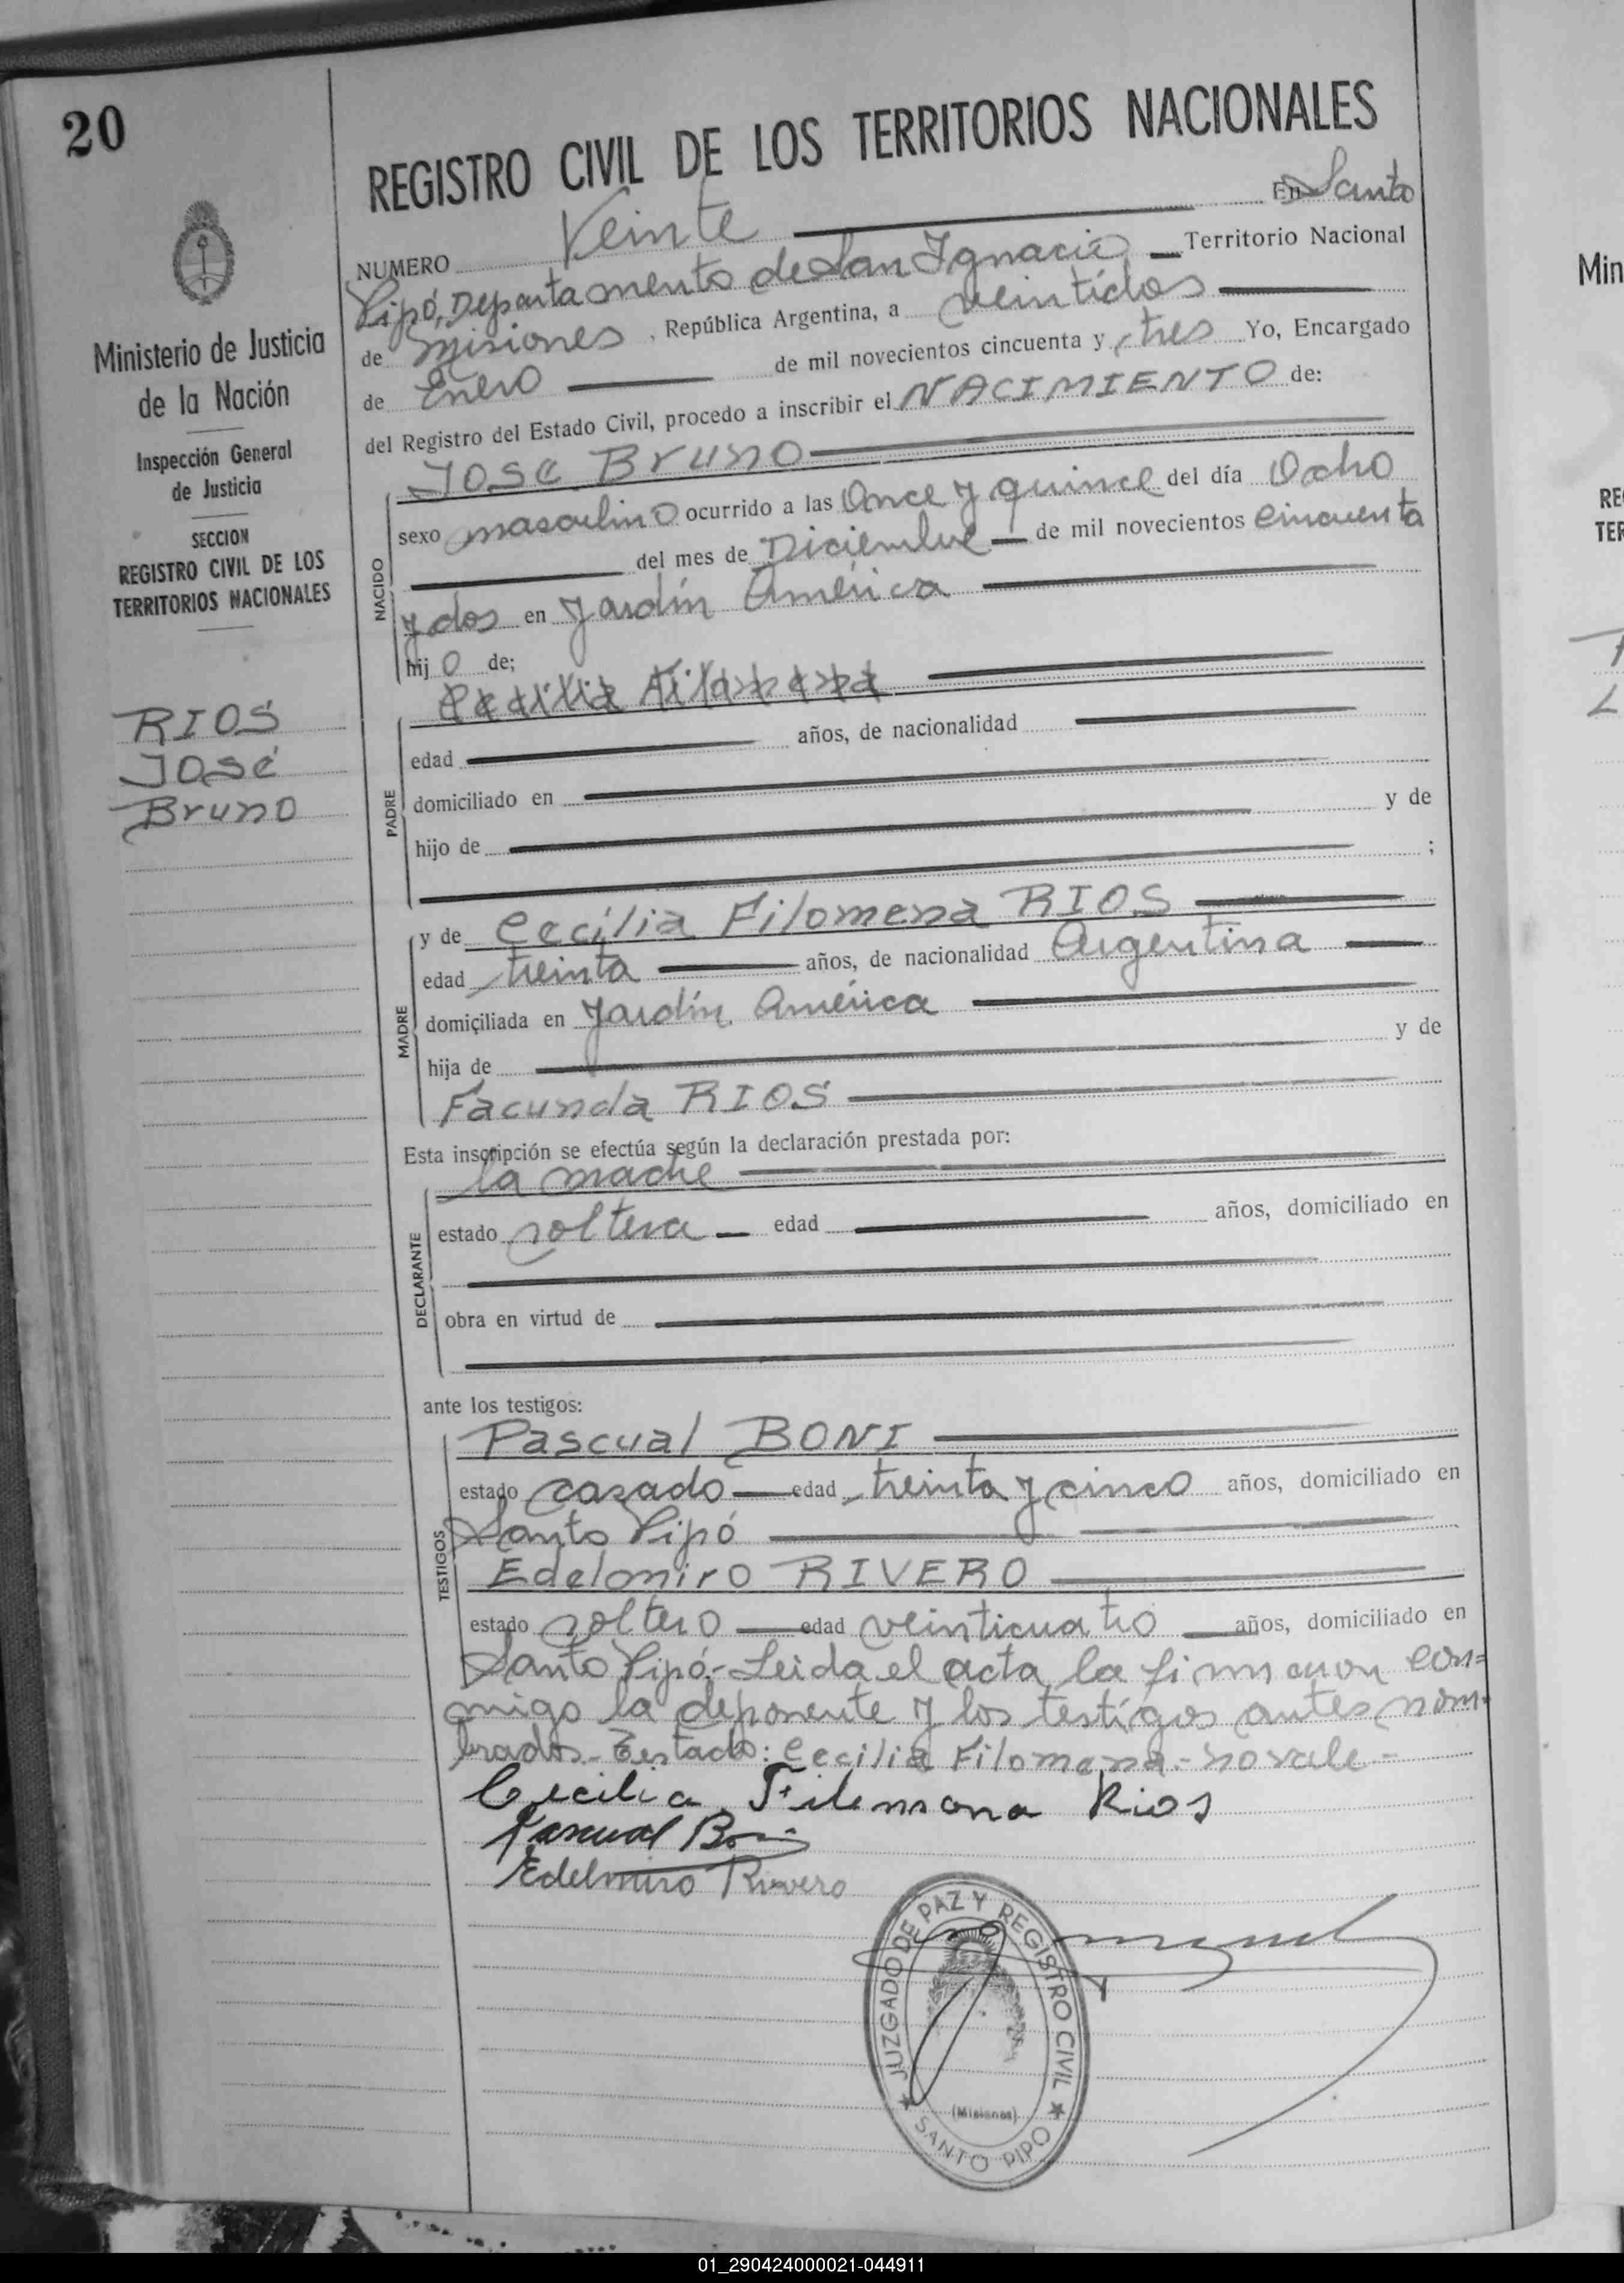 20
REGISTRO CIVIL DE LOS TERRITORIOS NACIONALES
NUMERO Veinte En Santo
Pipó, Departamento de San Ignacio Territorio Nacional
de Misiones, República Argentina, a veintidos
de Enero de mil novecientos cincuenta y tres Yo, Encargado
del Registro del Estado Civil, procedo a inscribir el NACIMIENTO de:
JOSE Bruno
NACIDO
sexo masculino ocurrido a las Once y quince del día Ocho
del mes de Diciembre de mil novecientos cincuenta
y dos en Jardín América
hijo de;
Cecilia Filomena
PADRE
edad años, de nacionalidad
domiciliado en
hijo de y de
;
MADRE
y de Cecilia Filomena RIOS
edad treinta años, de nacionalidad Argentina
domiciliada en Jardín América
hija de y de
Facunda RIOS
Esta inscripción se efectúa según la declaración prestada por:
la madre
DECLARANTE
estado soltera edad años, domiciliado en
obra en virtud de
ante los testigos:
Pascual BONI
TESTIGOS
estado casado edad treinta y cinco años, domiciliado en
Santo Pipó
Edelmiro RIVERO
estado soltero edad veinticuatro años, domiciliado en
Santo Pipó.- Leida el acta la firmaron con=
migo la deponente y los testigos antes nom-
brados.- Testado: Cecilia Filomena.- no vale.-
Cecilia Filomena Rios
Pascual Boni
Edelmiro Rivero
JUZGADO DE PAZ Y REGISTRO CIVIL
(Misiones)
SANTO PIPO
Ministerio de Justicia
de la Nación
Inspección General
de Justicia
SECCION
REGISTRO CIVIL DE LOS
TERRITORIOS NACIONALES
RIOS
JOSé
Bruno
Min
RE
TER
01_290424000021-044911